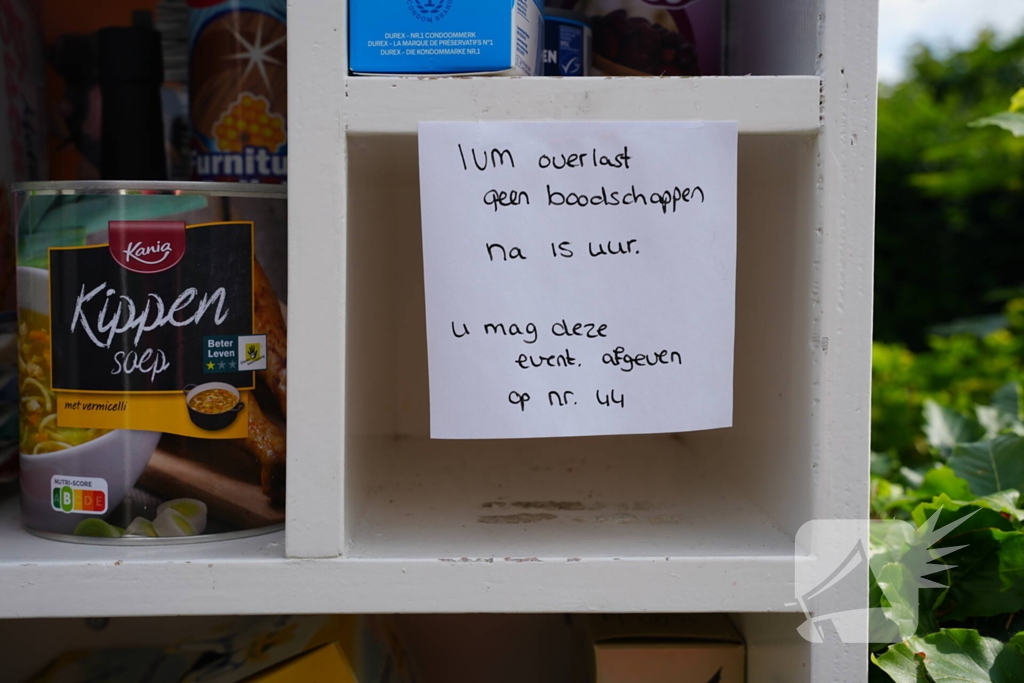 DUREX - NR.1 CONDOOMMERK
DUREX - LA MARQUE DE PRÉSERVATIFS N°1
DUREX - DIE KONDOMMARKE NR.1
EN
Furnitu
IVM overlast
geen boodschappen
na 15 uur.
u mag deze
event. afgeven
op nr. 44
Kania
Kippen
soep
Beter
Leven
met vermicelli
NUTRI-SCORE
A B C D E